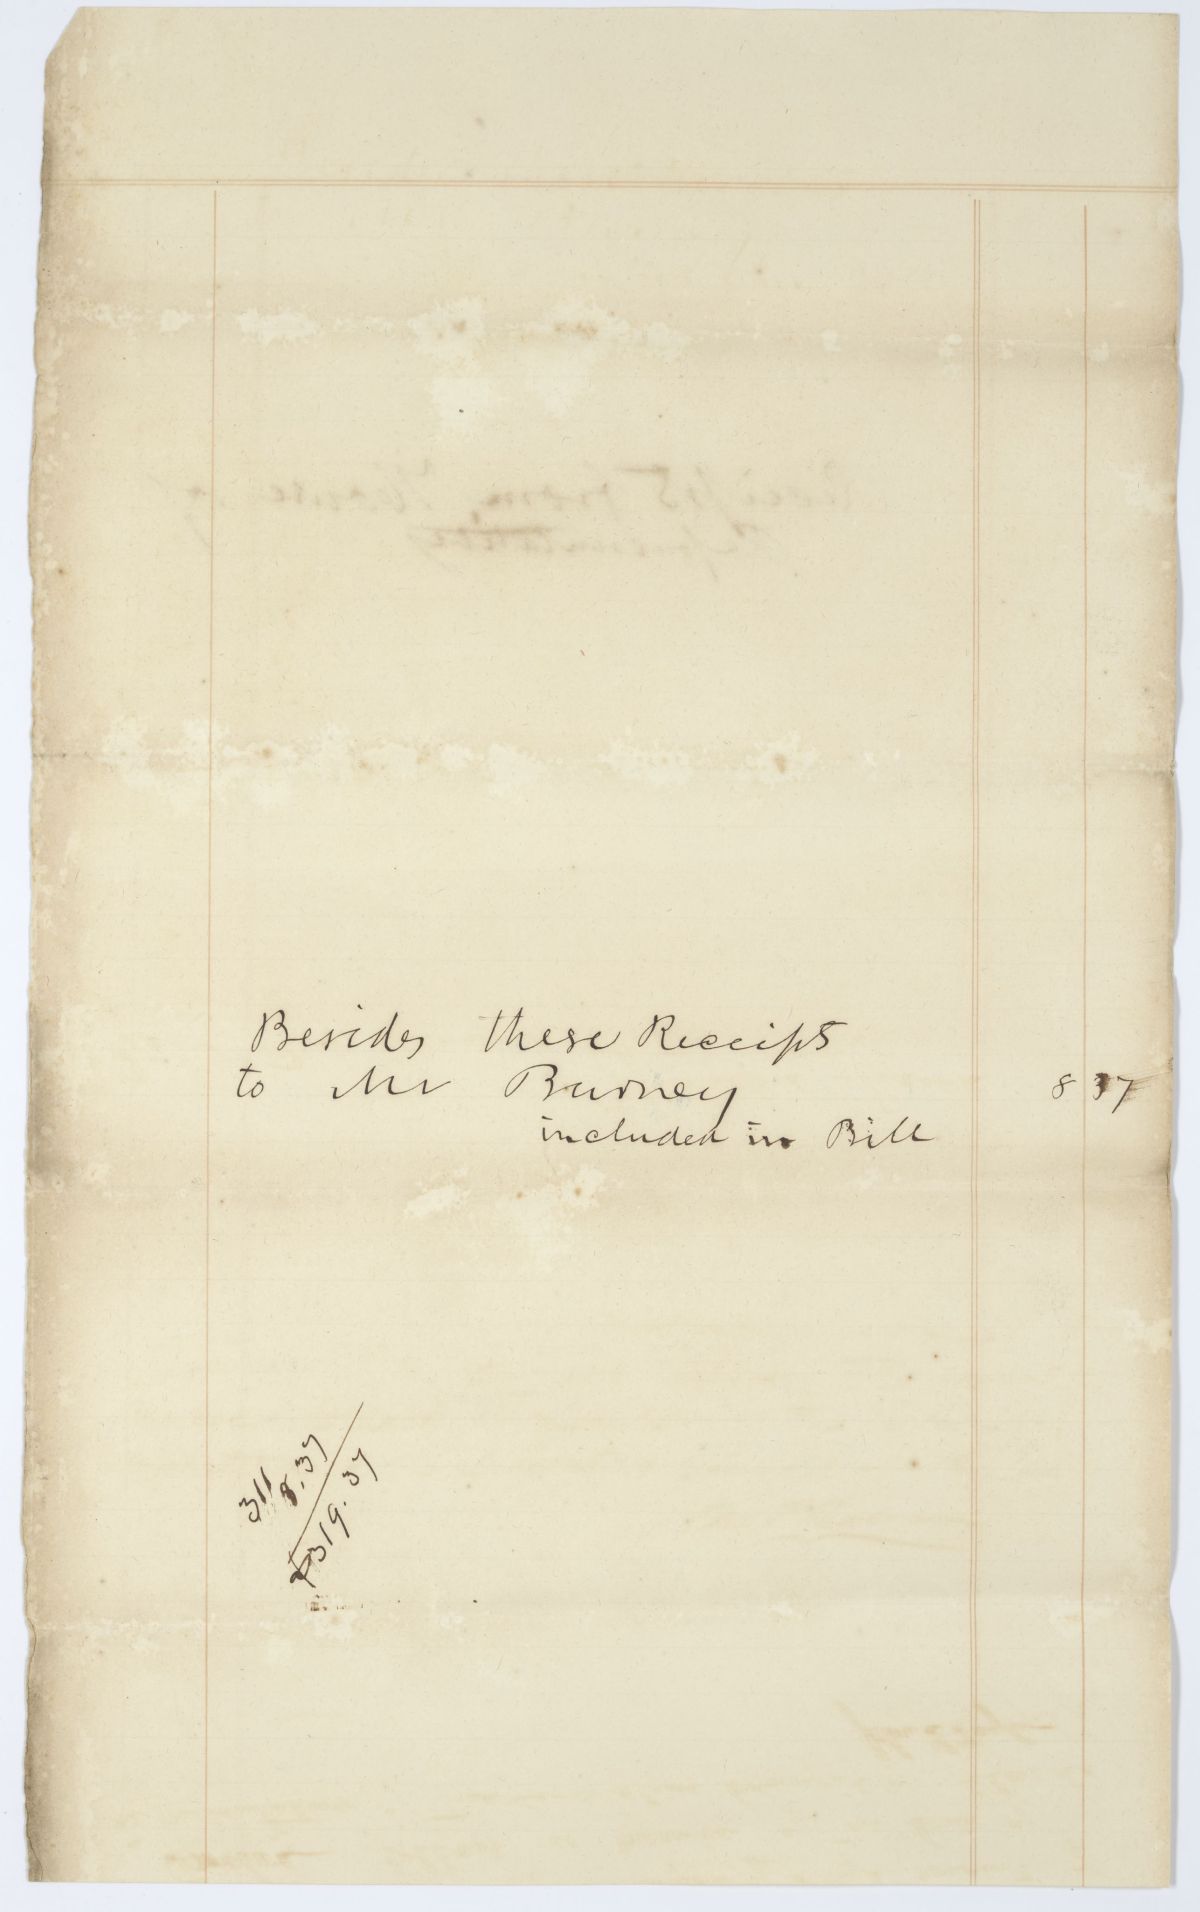 Besides these Receipts
to Mr Burney 8 37
included in Bill
311
8.37
319.37